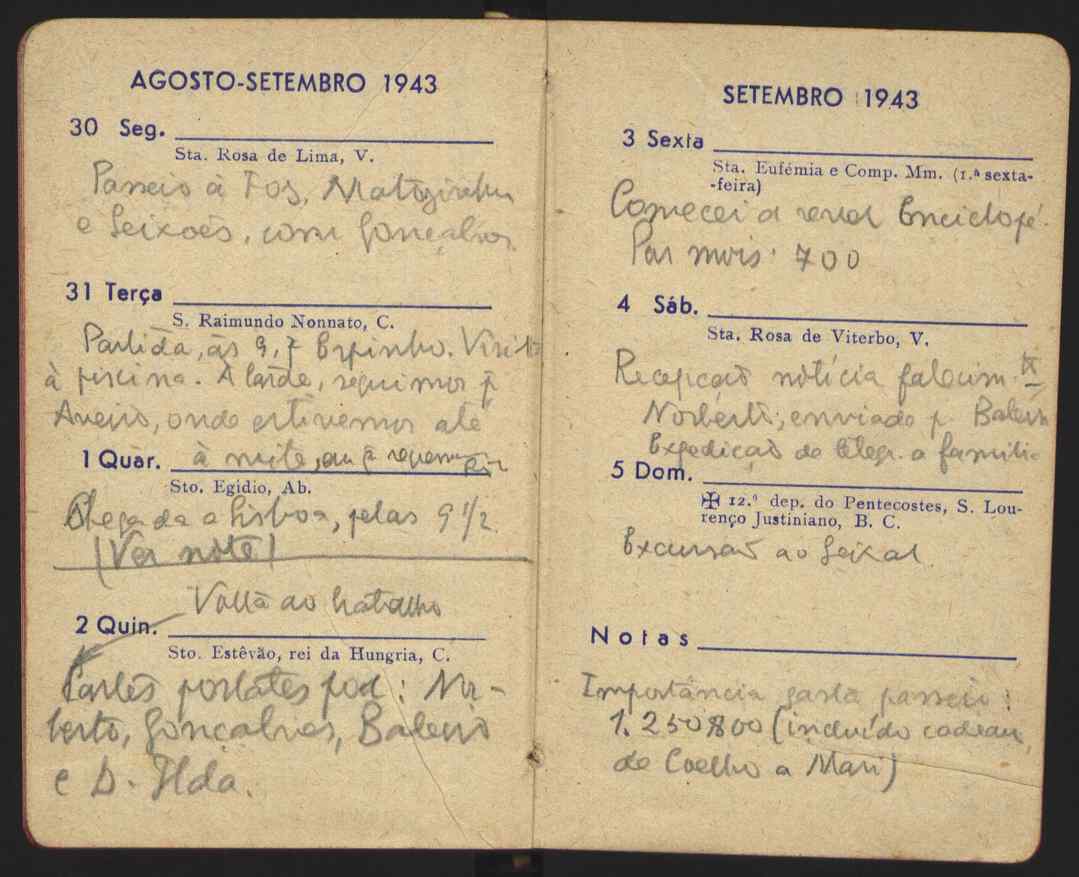 AGOSTO-SETEMBRO 1943
30 Seg.
Sta. Rosa de Lima, V.
Passeio à Foz, Matozinhos
e Leixões, com Gonçalves.
31 Terça
S. Raimundo Nonnato, C.
Partida, às 9, p Espinho. Visita
à piscina. À tarde, seguimos p
Aveiro, onde estivemos até
1 Quar.
à noite,
Sto. Egidio, Ab.
Chegada a Lisboa, pelas 9 1/2
(Ver nota)
Volta ao trabalho
2 Quin.
Sto. Estêvão, rei da Hungria, C.
Cartes postales pod: Nor-
berto, Gonçalves, Baleiro
e D. Ilda.
SETEMBRO 1943
3 Sexta
Sta. Eufémia e Comp. Mm. (1.ª sexta-
-feira)
Comecei a Enciclopé.
Por mois: 700
4 Sáb.
Sta. Rosa de Viterbo, V.
Recepção notícia falecim.to
Norberto; enviado p. Baleiro
Expedição de telegr. a família
5 Dom.
✠ 12.º dep. do Pentecostes, S. Lou-
renço Justiniano, B. C.
Excursão ao Seixal.
Notas
Importância gasta passeio:
1.250$00 (incluído cadeau
de Coelho a Mari)